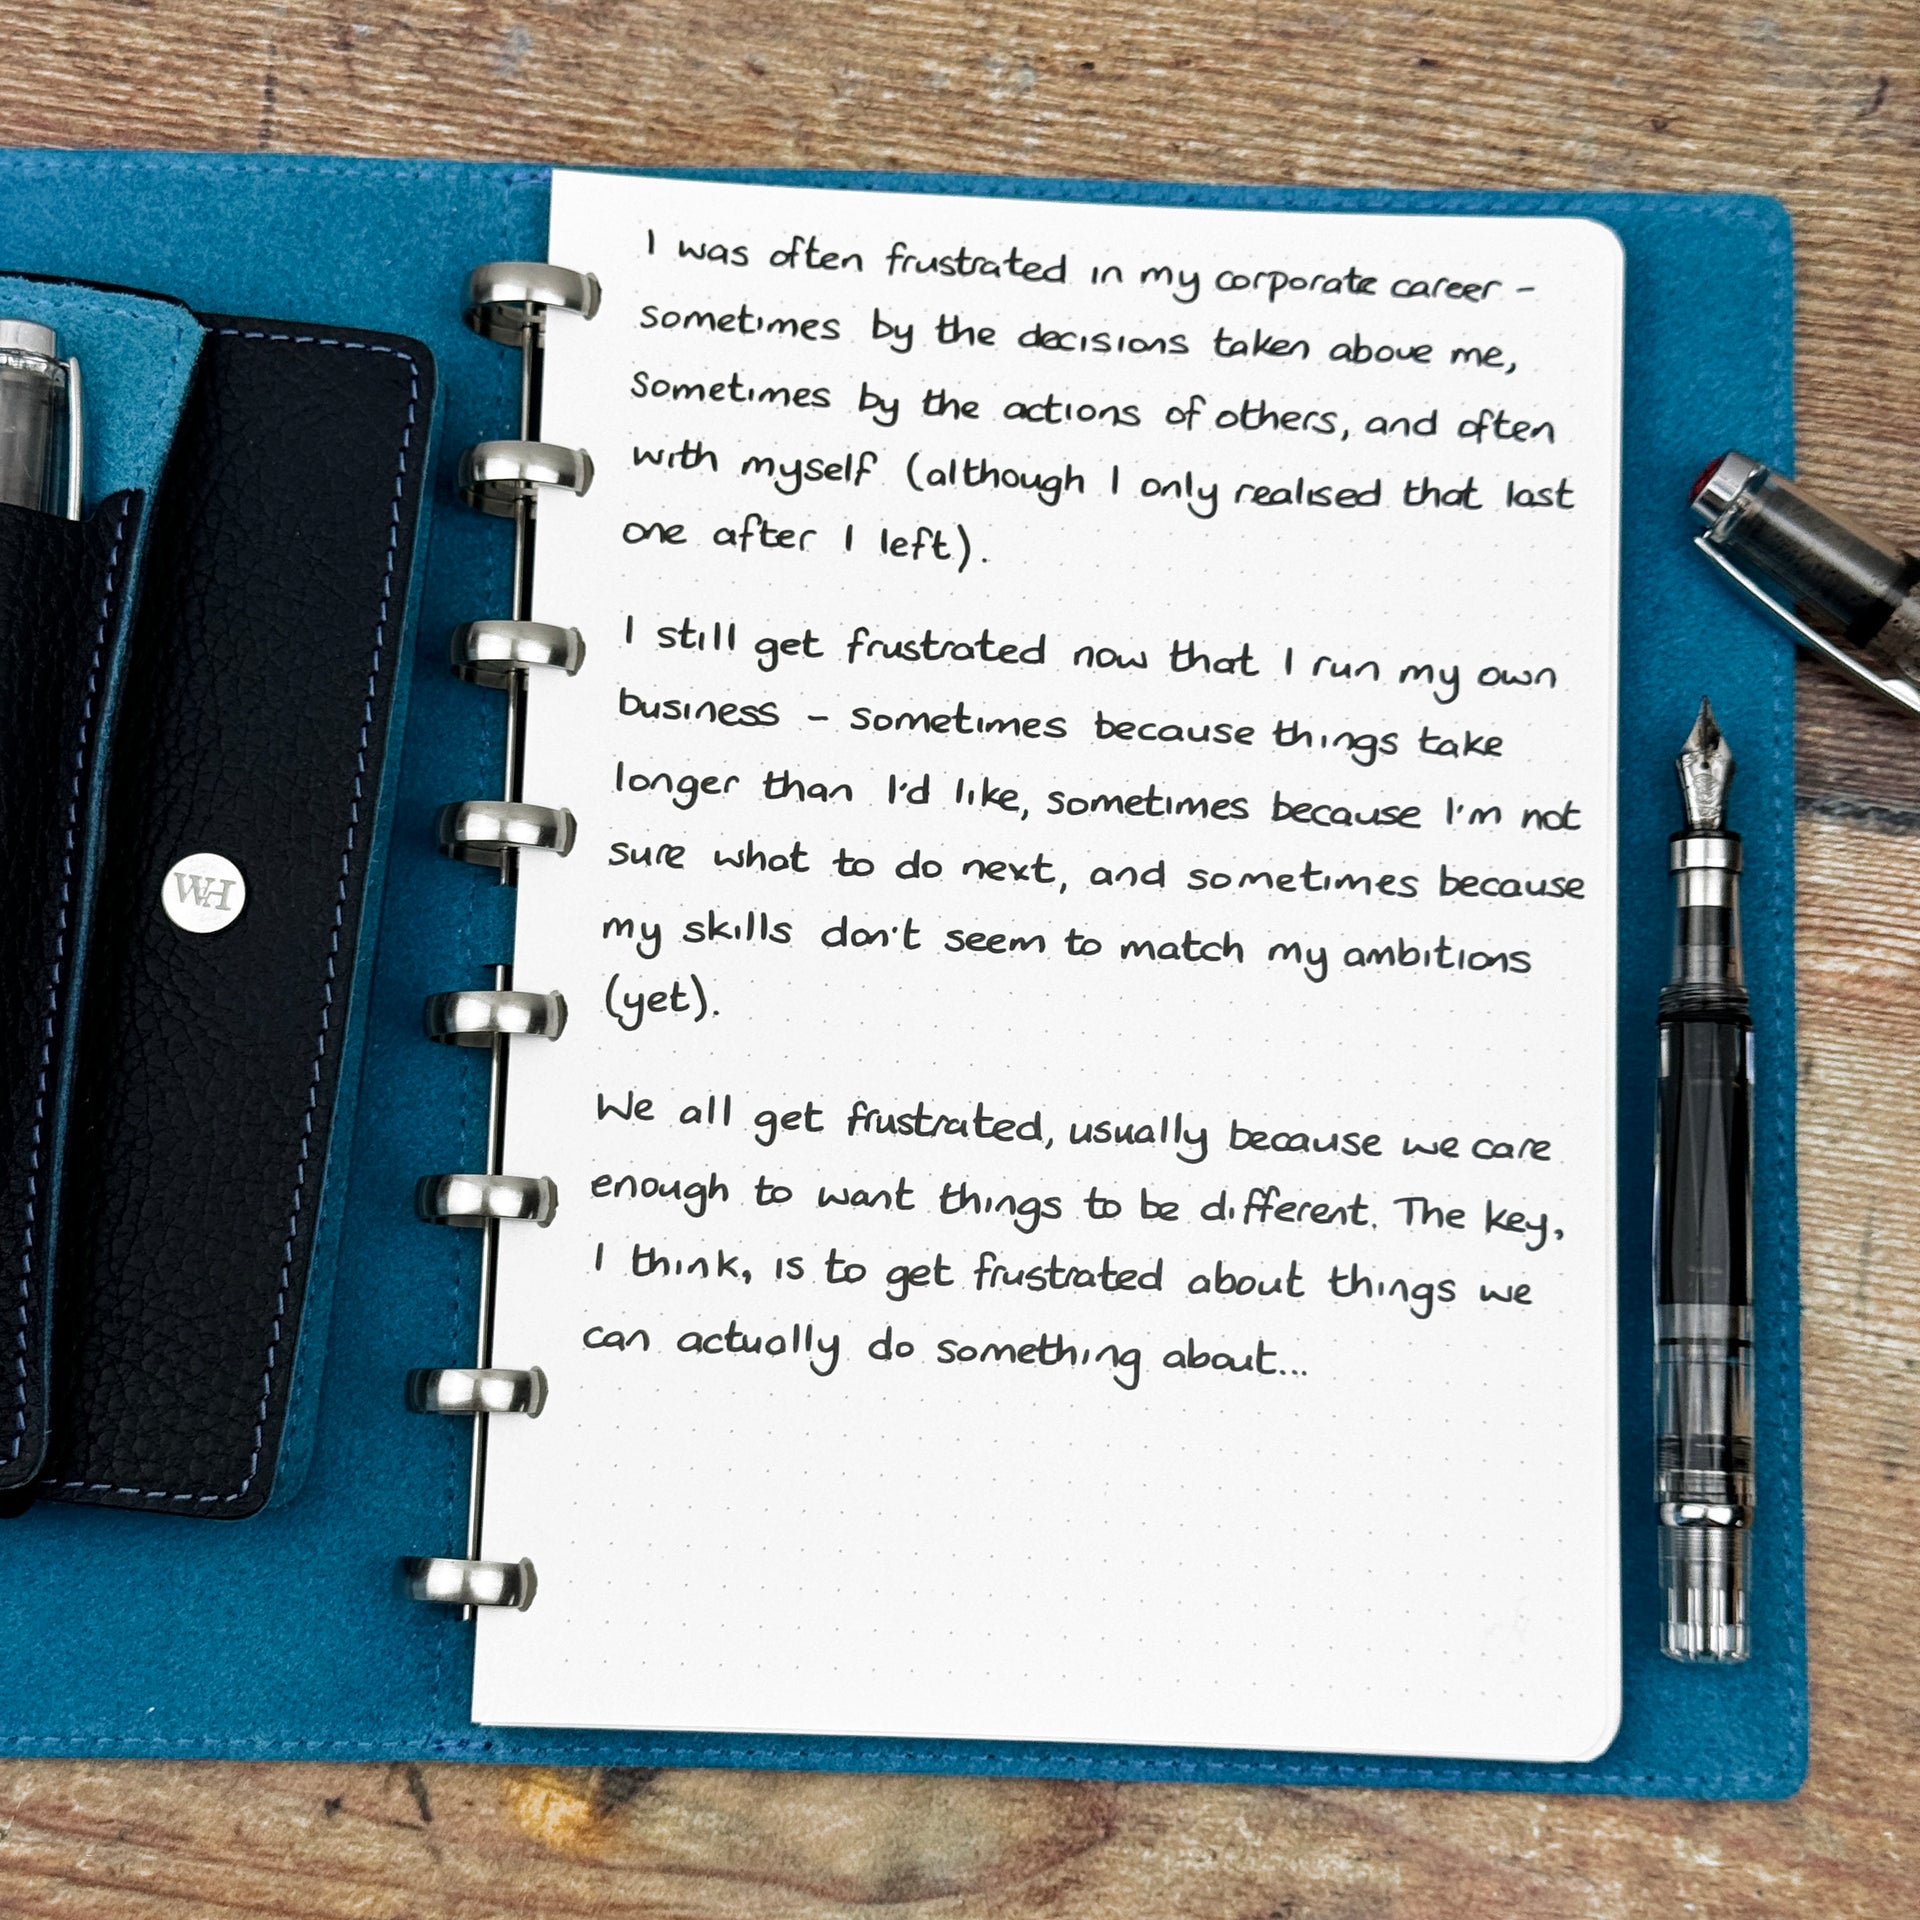 I was often frustrated in my corporate career -
sometimes by the decisions taken above me,
sometimes by the actions of others, and often
with myself (although I only realised that last
one after I left).
I still get frustrated now that I run my own
business - sometimes because things take
longer than I'd like, sometimes because I'm not
sure what to do next, and sometimes because
my skills don't seem to match my ambitions
(yet).
We all get frustrated, usually because we care
enough to want things to be different. The key,
I think, is to get frustrated about things we
can actually do something about...
WH